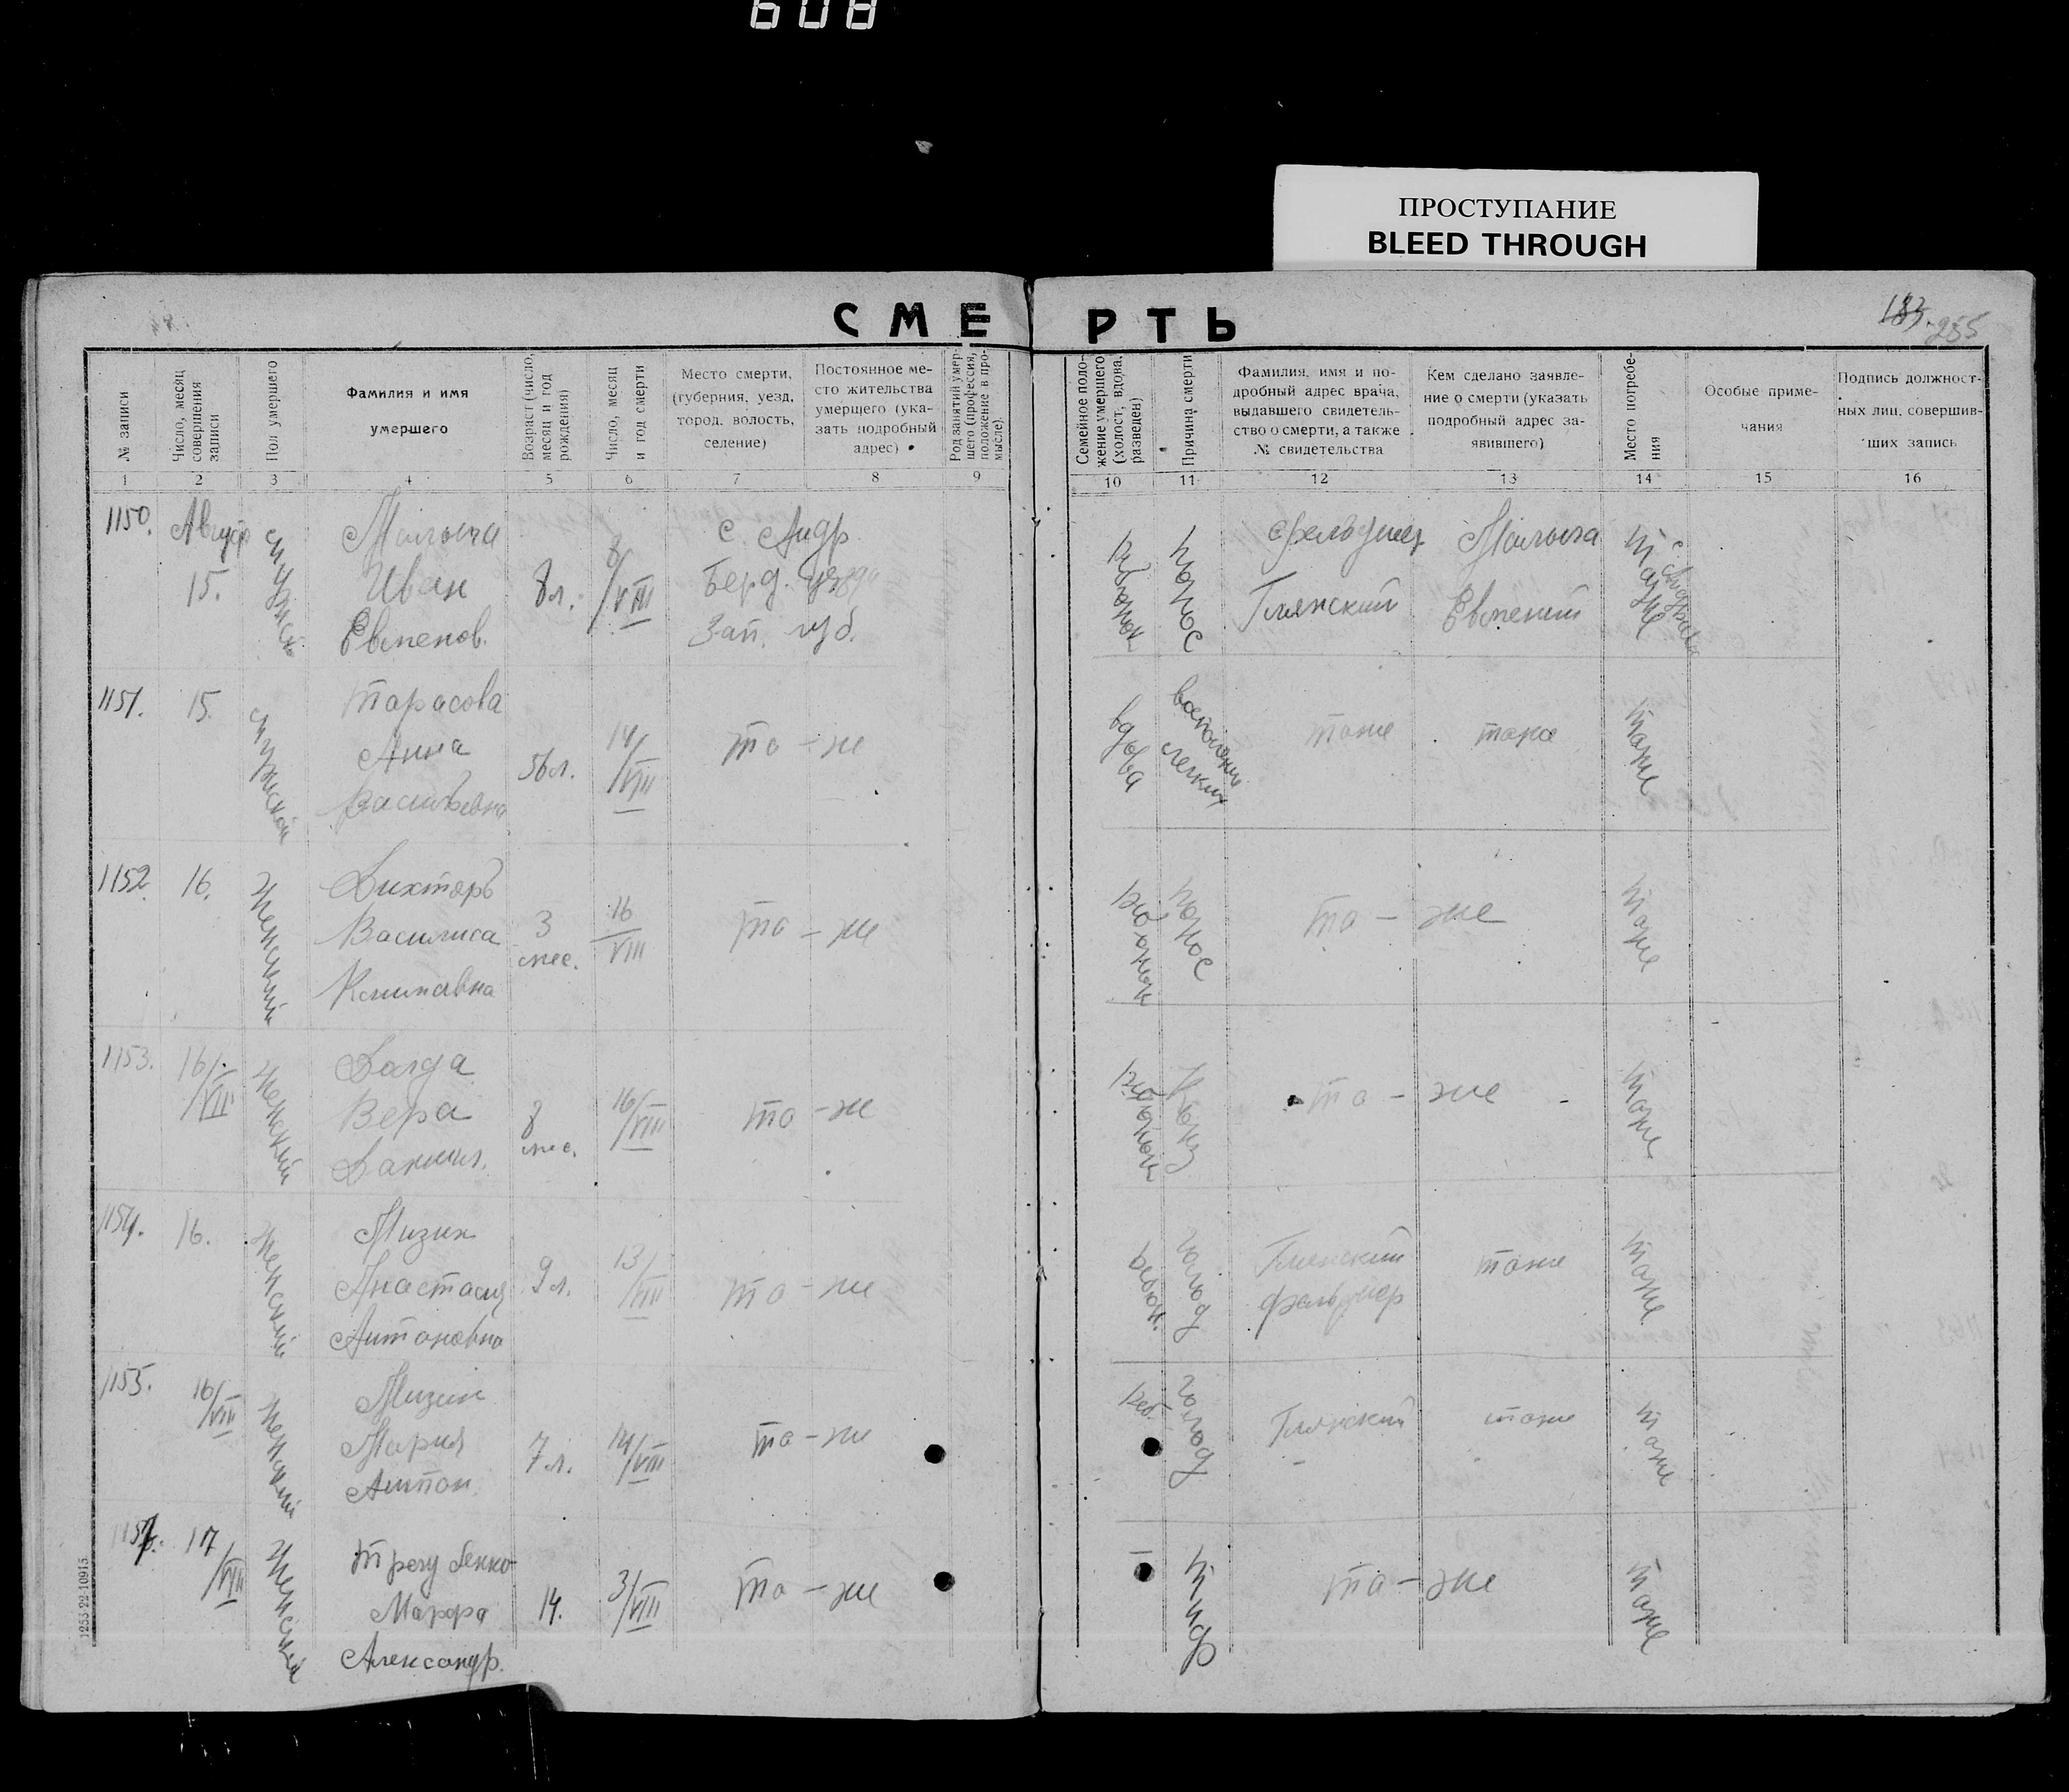 608
ПРОСТУПАНИЕ
BLEED THROUGH
СМЕРТЬ
183. 255
№ записи
Число, месяц совершения записи
Пол умершего
Фамилия и имя умершего
Возраст (число, месяц и год рождения)
Число, месяц и год смерти
Место смерти, (губерния, уезд, город, волость, селение)
Постоянное место жительства умершего (указать подробный адрес)
Род занятий умершего (профессия, положение в промысле).
Семейное положение умершего (холост, вдова, разведен)
Причина смерти
Фамилия, имя и подробный адрес врача, выдавшего свидетельство о смерти, а также № свидетельства
Кем сделано заявление о смерти (указать подробный адрес заявившего)
Место погребения
Особые примечания
Подпись должностных лиц, совершивших запись
1 2 3 4 5 6 7 8 9 10 11 12 13 14 15 16
1150. Август 15. мужск Иван 8 л. 8/VIII с. Андр. Берд. Зап. губ. ребенок понос фельдшер Глянский Евгений тоже
1151. 15. мужской Тарасова Анна Васильевна 56 л. 14/VIII то-же вдова легких тоже тоже тоже
1152. 16. женский Василиса 3 мес. 16/VIII то-же ребенок понос то-же тоже
1153. 16/VIII женский Вера Данил. 8 мес. 16/VIII то-же ребенок то-же тоже
1154. 16. женский Мизин Анастасия Антоновна 9 л. 13/VIII то-же ребен. голод Глянский фельдшер тоже тоже
1155. 16/VIII женский Мизин Мария Антон. 7 л. 14/VIII то-же реб. голод Глянский тоже тоже
17/VIII женский Марфа Александр. 14. 3/VIII то-же тиф то-же тоже
1253-22-10915